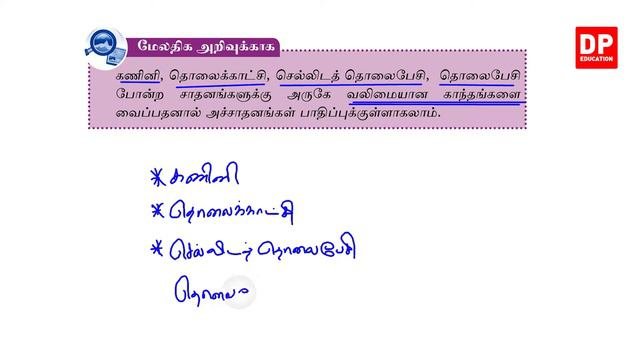 மேலதிக அறிவுக்காக
DP
EDUCATION
கணினி, தொலைக்காட்சி, செல்லிடத் தொலைபேசி, தொலைபேசி
போன்ற சாதனங்களுக்கு அருகே வலிமையான காந்தங்களை
வைப்பதனால் அச்சாதனங்கள் பாதிப்புக்குள்ளாகலாம்.
* கணினி
* தொலைக்காட்சி
* செல்லிடத் தொலைபேசி
தொலை